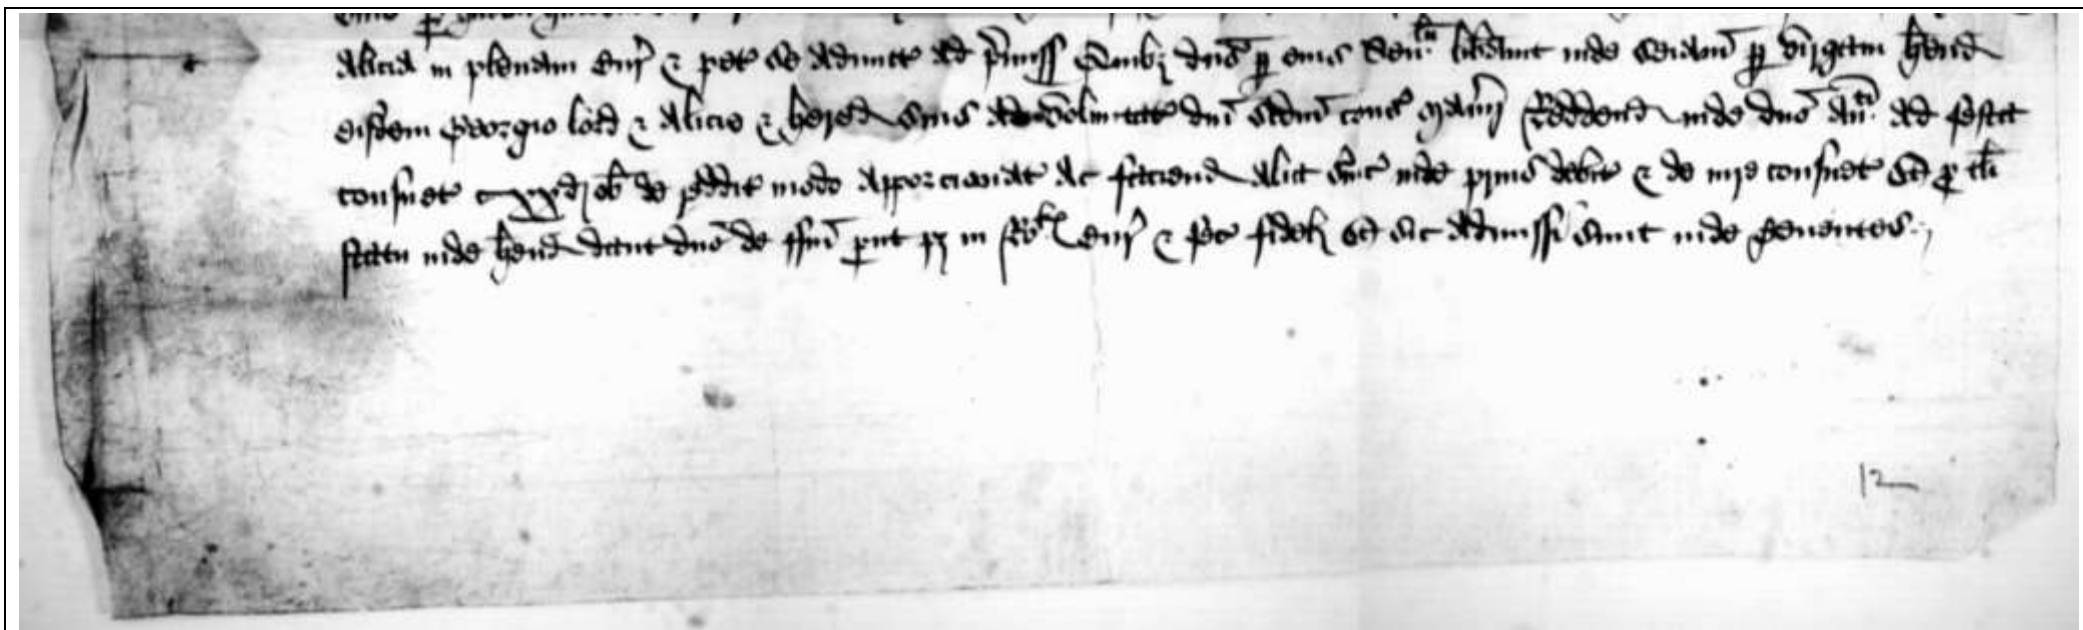 Alicia in plenam Cur̄ & pet̄ se admitti ad p̄miss Quibȝ dn̄s ꝑ senu Sen̄ liƀauit inde seiānā ꝑ virgam h̄end
eisdem Georgio lord & Alicie & hered suis ad voluntatē dn̄i scdm̄ cons̄ Man̄ij Reddend inde dn̄o ān̄ ad festa
consuet̄ xxd oƀ de reddit̄ modo apporcionat̄ ac faciend alia s̄uic̄ inde prius debit̄ & de iure consuet̄ Et ꝓ tali
statu inde h̄end dant dn̄o de ffine ꝓut pȝ in Cur̄ & fec̄ fidel Et sic admissi sunt inde tenentes
12